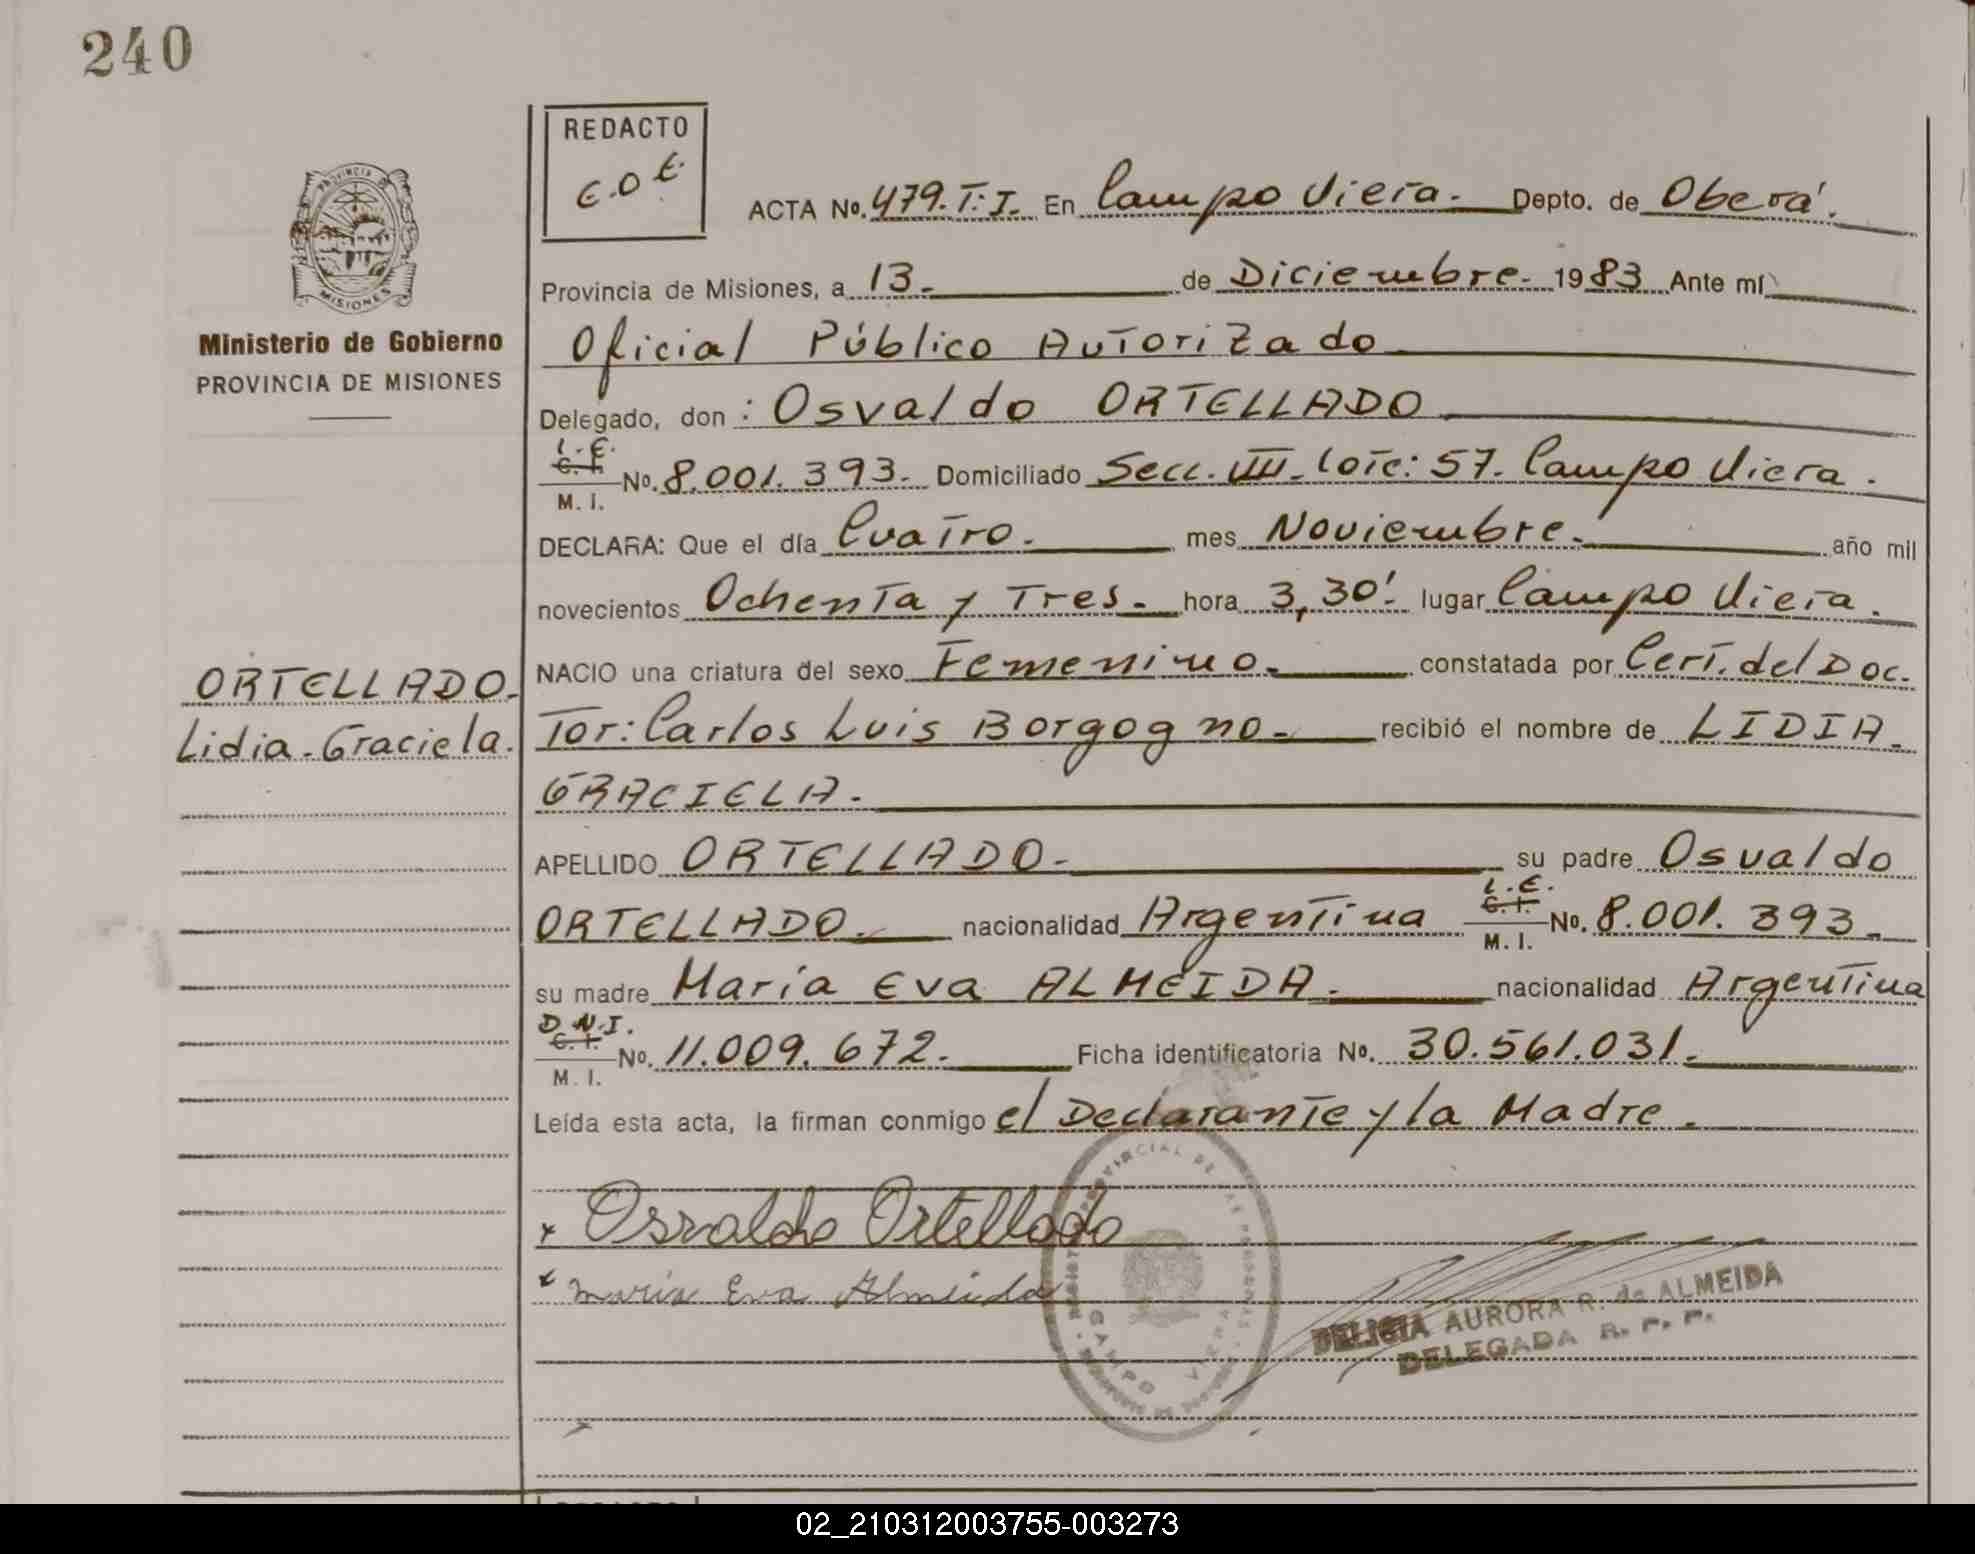 240
REDACTO
E.O.E.
ACTA No. 479.T.I. En Campo Viera. Depto. de Oberá.
PROVINCIA DE
MISIONES
Provincia de Misiones, a 13. de Diciembre. 1983 Ante mí
Ministerio de Gobierno
PROVINCIA DE MISIONES
Oficial Público Autorizado
Delegado, don: Osvaldo ORTELLADO
L.E.
C.I.
M. I.
No. 8.001.393. Domiciliado Secc. VIII. Lote: 57. Campo Viera.
DECLARA: Que el día Cuatro. mes Noviembre. año mil
novecientos Ochenta y Tres. hora 3,30'. lugar Campo Viera.
NACIO una criatura del sexo Femenino. constatada por Cert. del Doc.
ORTELLADO.
Lidia-Graciela.
Tor: Carlos Luis Borgogno. recibió el nombre de LIDIA.
GRACIELA.
APELLIDO ORTELLADO. su padre Osvaldo
ORTELLADO. nacionalidad Argentina L.E. C.I. M. I. No. 8.001.393.
su madre María Eva ALMEIDA. nacionalidad Argentina
D.N.I.
C.I.
M. I.
No. 11.009.672. Ficha identificatoria No. 30.561.031.
Leída esta acta, la firman conmigo el Declarante y la Madre.
x Osvaldo Ortellado
x maria Eva Almeida
PROVINCIAL DE LAS PERSONAS
CAMPO VIERA
DELISIA AURORA R. de ALMEIDA
DELEGADA R. P. P.
02_210312003755-003273